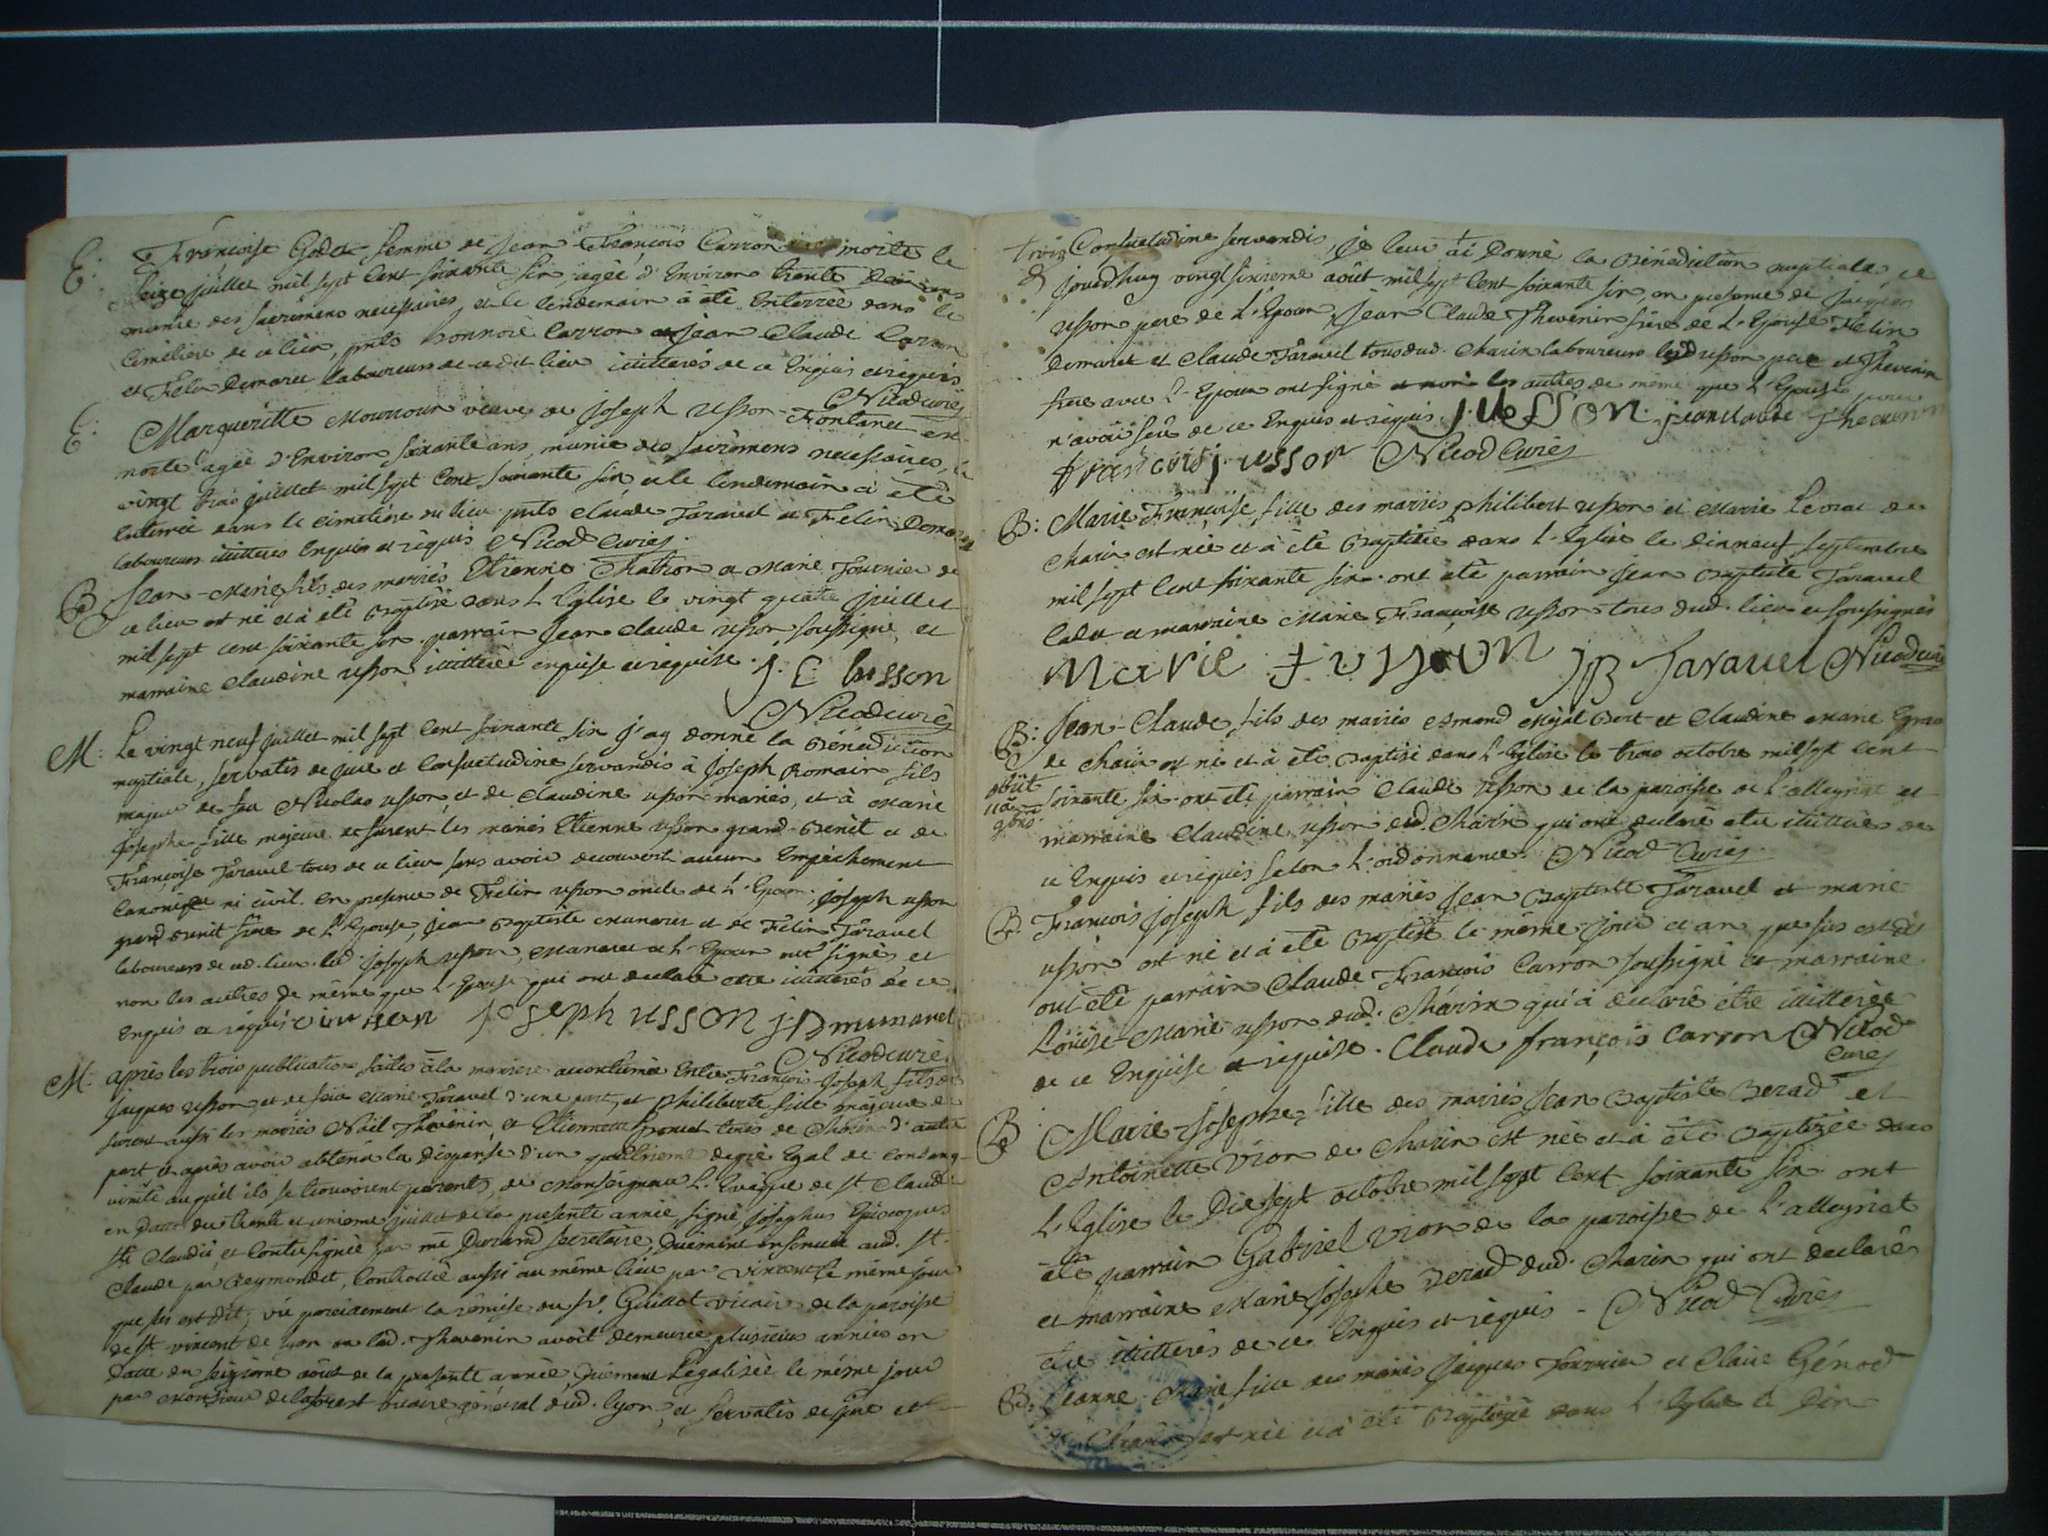 E: Françoise Godet femme de jean François Carron morte le
seize juillet mil sept cent soixante six, agée d'Environ trente
munie des sacremens necessaires, et le lendemain à été Enterrée dans le
Cimetiere de ce lieu, pnts honnoré Carron et jean Claude Carron
et Felix Demaret laboureurs de cedit lieu illitterés de ce Enquis et requis
Nicod curé
E: Marguerite Mounour veuve de joseph usson-Fontanet est
morte agée d'Environ soixante ans, munie des sacremens necessaires, le
vingt trois juillet mil sept Cent soixante six et le lendemain à été
Enterrée dans le cimetiere du lieu pnts Claude Taravel et Felix Demaret
laboureurs illitterés Enquis et requis Nicod Curé.
B: Jean-Marie fils des mariés Etienne Thabon et Marie Fournier de
ce lieu est né et à été Baptisé dans L'Eglise le vingt quatre juillet
mil sept cent soixante six. parrain jean Claude usson soussigné, et
marraine Claudine usson illitterée enquise et requise. J. C husson
Nicod curé
M: Le vingt neuf juillet mil sept Cent soixante six j'ay donné la Bénédiction
nuptiale, servatis de jure et Consuetudine servandis à joseph Romain fils
majeur de feu Nicolas usson et de Claudine usson mariés, et à Marie
josephe fille majeure et furent les mariés Etienne usson grand-Benit et de
Françoise Taravel tous de ce lieu sans avoir decouvert aucun Empêchement
Canonique ni civil. En presence de Felix usson oncle de L'Epoux, joseph usson
grand Benit frere de L'Epouse, jean Baptiste Munaret et de Felix Taravel
laboureurs de ud. lieu. led joseph usson, Munaret et L'Epoux ont signés et
non les autres de même que L'Epouse qui ont declaré être illitterés de ce
Enquis et requis joseph usson j:B munaret
Nicod curé
M: après les trois publications faites à la maniere accoutumée Entre François-joseph fils de
jaques usson, et de feüe Marie Taravel d'une part, et philiberte fille majeure de
furent aussi les mariés Noël Thevenin et Etiennette tous de Charix d'autre
part et après avoir obtenû la dispense d'un quatrieme degré Egal de consang
uinité auquel ils se trouvoient parents, de Monseigneur L'Evêque de st. Claude
en datte du trente et unieme juillet de la presente année, signé josephus Episcopus
sti Claudii, et Contresignée par me Durand secretaire, Duement insinuée aud. st.
Claude par Reymondet, Controllée aussi au même lieu par vincent le même jour
que sus est dit; vü pareillement la remise du sr. Guillot vicaire de la paroisse
de st. vincent de Lyon ou lad. Thevenin avoit demeurée plusieurs années en
datte du seizieme août de la presente année, Duement Legalisée le même jour
par Monsieur delaforest vicaire général dud. Lyon, et servatis de jure et
Consuetudine servandis, je leur ai Donné la Bénédiction nuptiale ce
jourdhuy vingt sixieme août mil sept Cent soixante six, en presence de jaques
usson pere de L'Epoux, jean Claude Thevenin frere de L'Epouse Felix
demaret et Claude Taravel tous dud. Charix laboureurs. led usson pere et Thevenin
frere avec L'Epoux ont signé et non les autres de même que L'Epouse pour
n'avoir sçû de ce Enquis et requis. J. USSON. jean claude Thevenin
françois j. usson Nicod Curé
B: Marie Françoise fille des mariés philibert usson et Marie Levrat de
Charix est née et à été Baptisée dans L'Eglise le dixneuf septembre
mil sept Cent soixante six. ont été parrain jean Baptiste Taravel
Cadet et marraine Marie Françoise usson tous dud. lieu et soussignés
Marie f usson JB Taravel Nicod curé
B: Jean-Claude, fils des mariés Armand et Claudine Marie
de Charix est né et à été Baptisé dans L'Eglise le trois octobre mil sept Cent
obiit
soixante six. ont été parrain Claude usson de la paroisse de L'alleyriat et
marraine Claudine usson dud. Charix qui ont declaré etre illitterés de
ce Enquis et requis selon L'ordonnance. Nicod Curé.
B. François joseph fils des mariés jean Baptiste Taravel et marie
usson est né et à été Baptisé le même jour et an que sus est dit
ont été parrain Claude François Carron soussigné et marraine
Louïse-Marie usson dud. Charix qui à declaré être illitterée
de ce Enquise et requise. Claude françois carron Nicod
Curé
B Marie-josephe, fille des mariés jean Baptiste Berad et
Antoinette vion de Charix est née et à été Baptizée dans
L'Eglise le Dixsept octobre mil sept Cent soixante six. ont
été parrain Gabriel vion de la paroisse de L'alleyriat
et marraine Marie josephe Berad dud. Charix qui ont declaré
être illitterés de ce Enquis et requis - Nicod Curé
B: Jeanne-Marie fille des mariés jaques Fournier et Claire Génod
de Charix est née et à été Baptizée dans L'Eglise le Dix